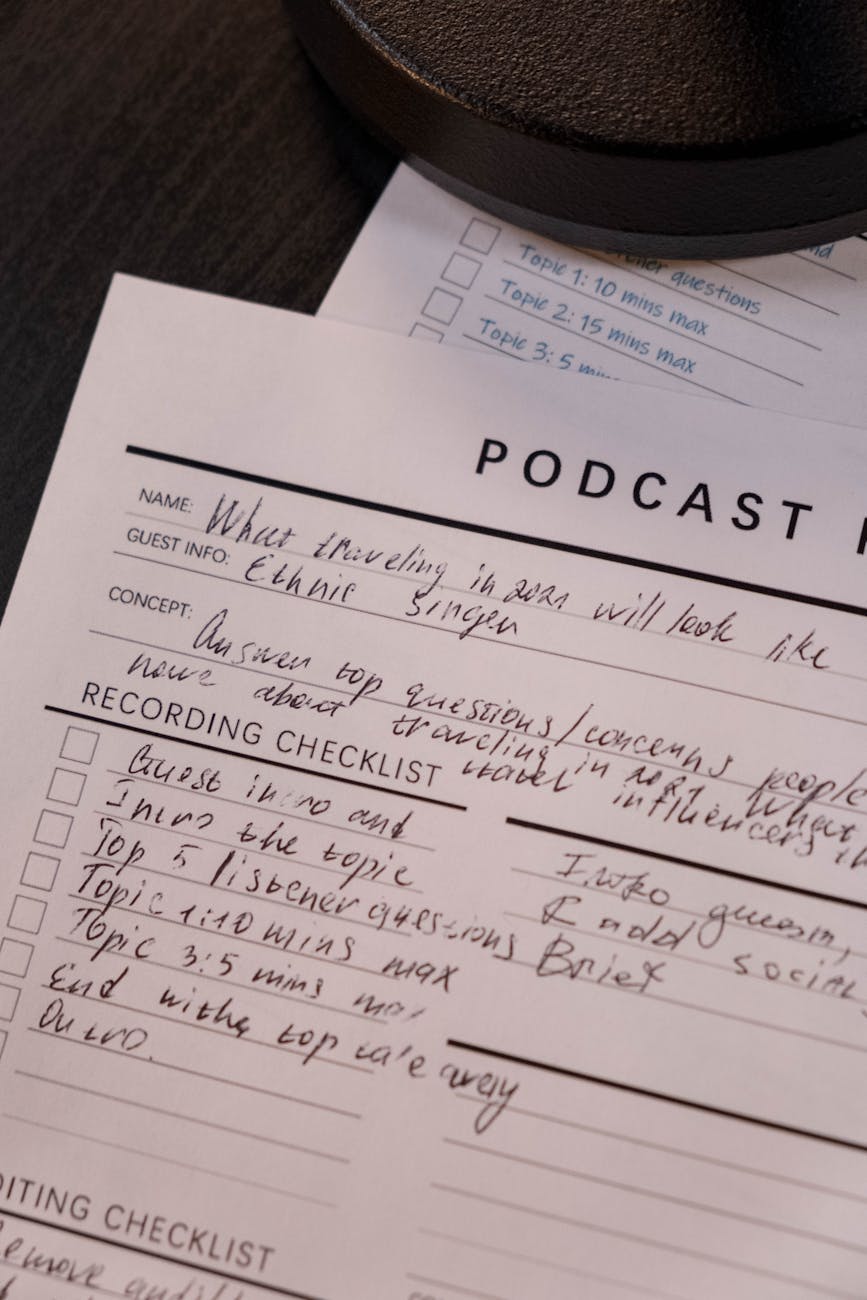 questions
Topic 1: 10 mins max
Topic 2: 15 mins max
Topic 3: 5
PODCAST
NAME: What traveling in 2021 will look like
GUEST INFO: Ethnic Singer
CONCEPT: Answer top questions/concerns people
have about traveling in 2021. What
travel influencers
RECORDING CHECKLIST
Guest intro and
Intro the topic
Top 5 listener questions
Topic 1:10 mins max
Topic 3:5 mins
End with a top take away
Outro.
Intro
& add social
Brief
EDITING CHECKLIST